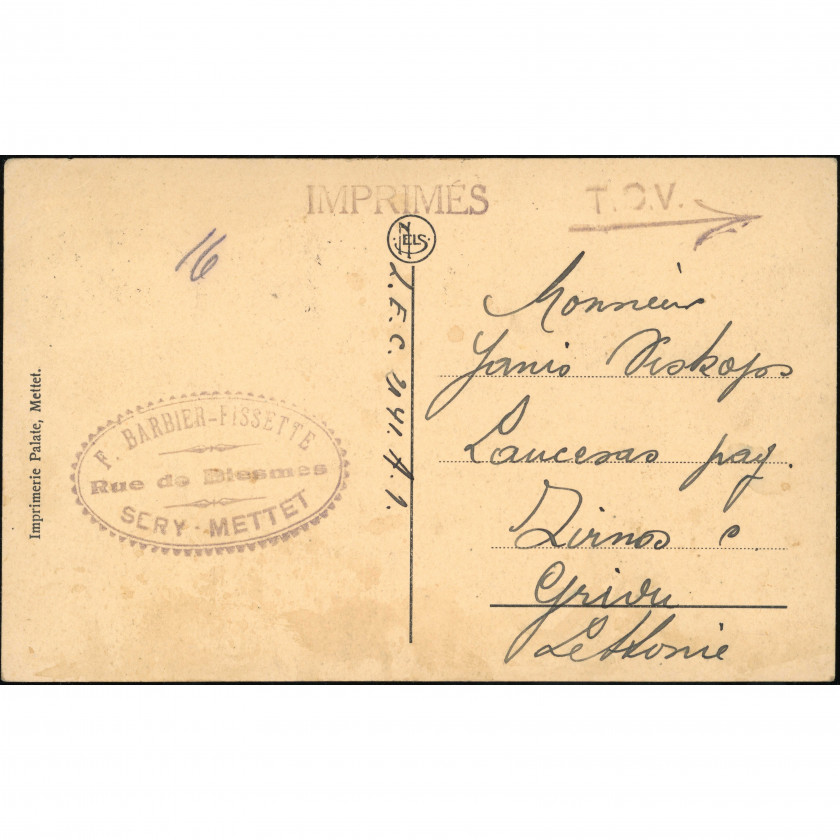 IMPRIMÉS
T.C.V.
NELS
16
Imprimerie Palate, Mettet.
F. BARBIER-FISSETTE
Rue de Biesmes
SERY-METTET
L.E.C. 2041. A.1.
Monsieur
Janis Viskops
Lauceras pag.
Zirnos c.
Grivu
Lettonie